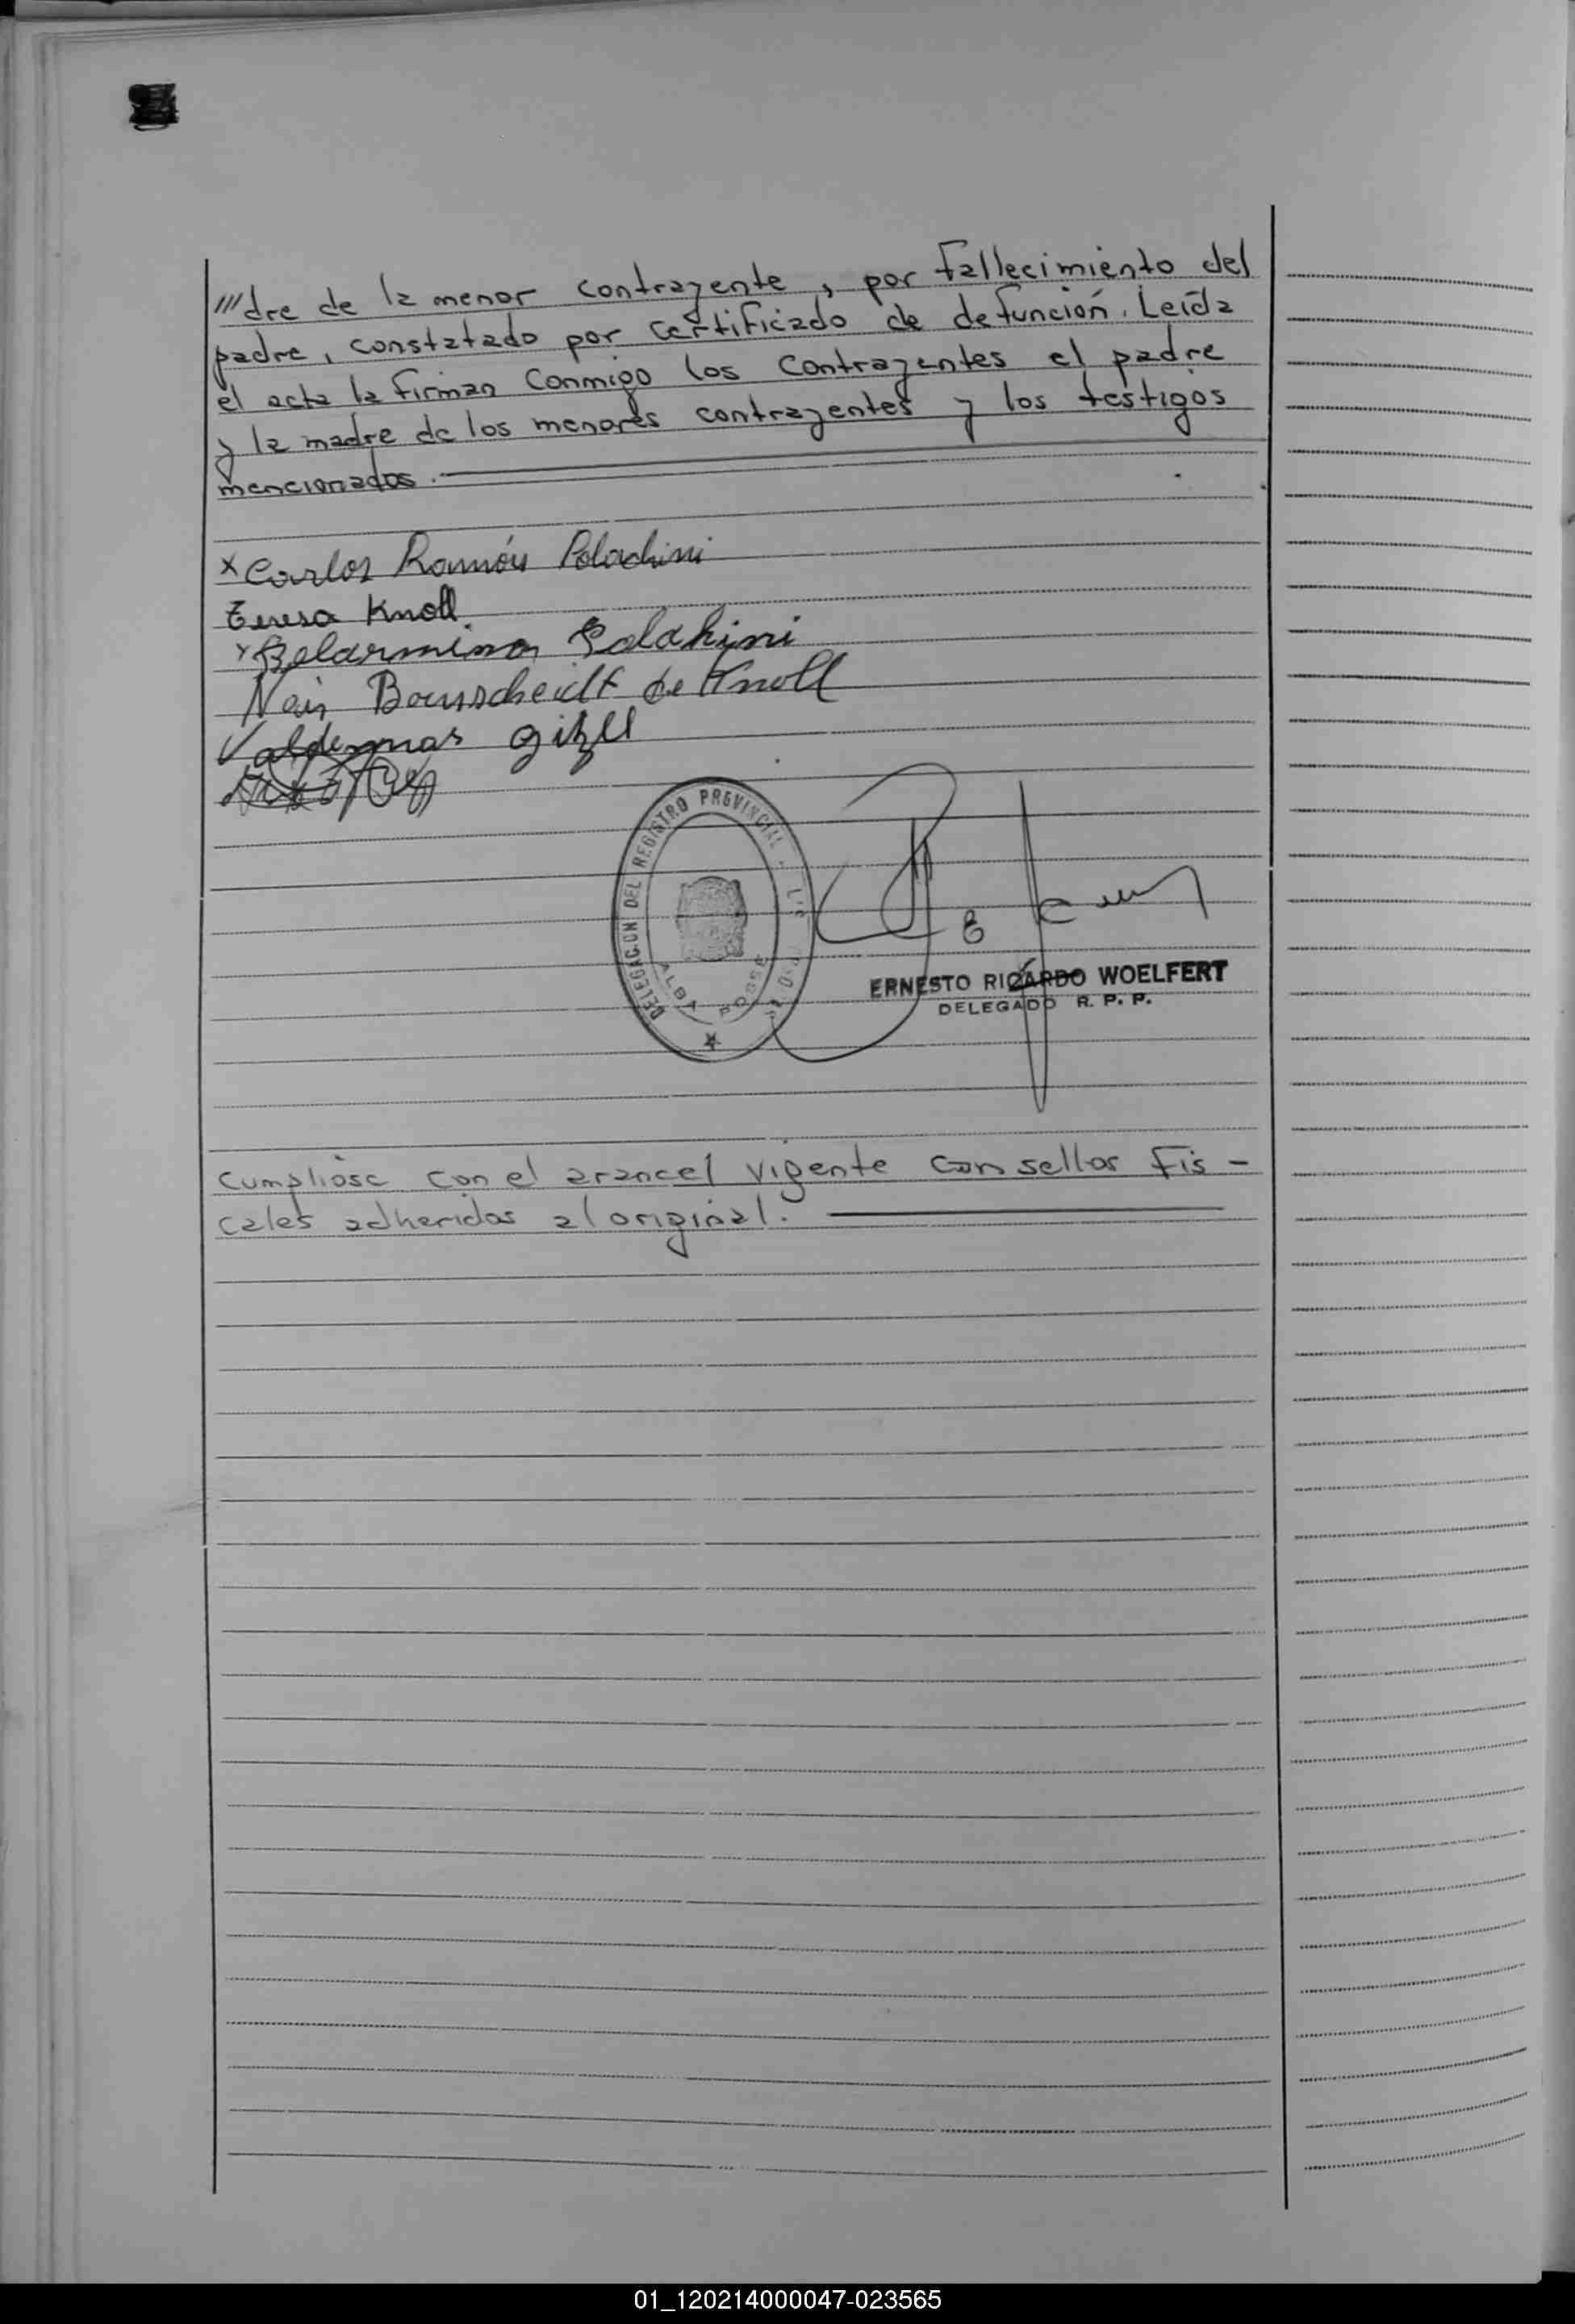 ///dre de la menor contrayente, por fallecimiento del
padre, constatado por certificado de defunción. Leída
el acta la firman conmigo los contrayentes el padre
y la madre de los menores contrayentes y los testigos
mencionados.
x Carlos Ramón Polachini
Teresa Knoll.
x Belarmino Polahini
Nair Bourscheidt de Knoll
Valdemar
DELEGACION DEL REGISTRO PROVINCIAL
ALBA POSSE
ERNESTO RICARDO WOELFERT
DELEGADO R. P. P.
Cumplióse con el arancel vigente con sellos fis-
cales adheridos al original.
01_120214000047-023565